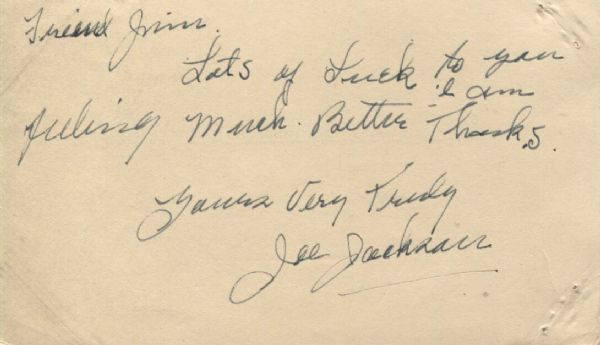 Friend Jim.
Lots of Luck to you
I am
feeling Much. Better Thanks.
Yours Very Truly
Joe Jackson